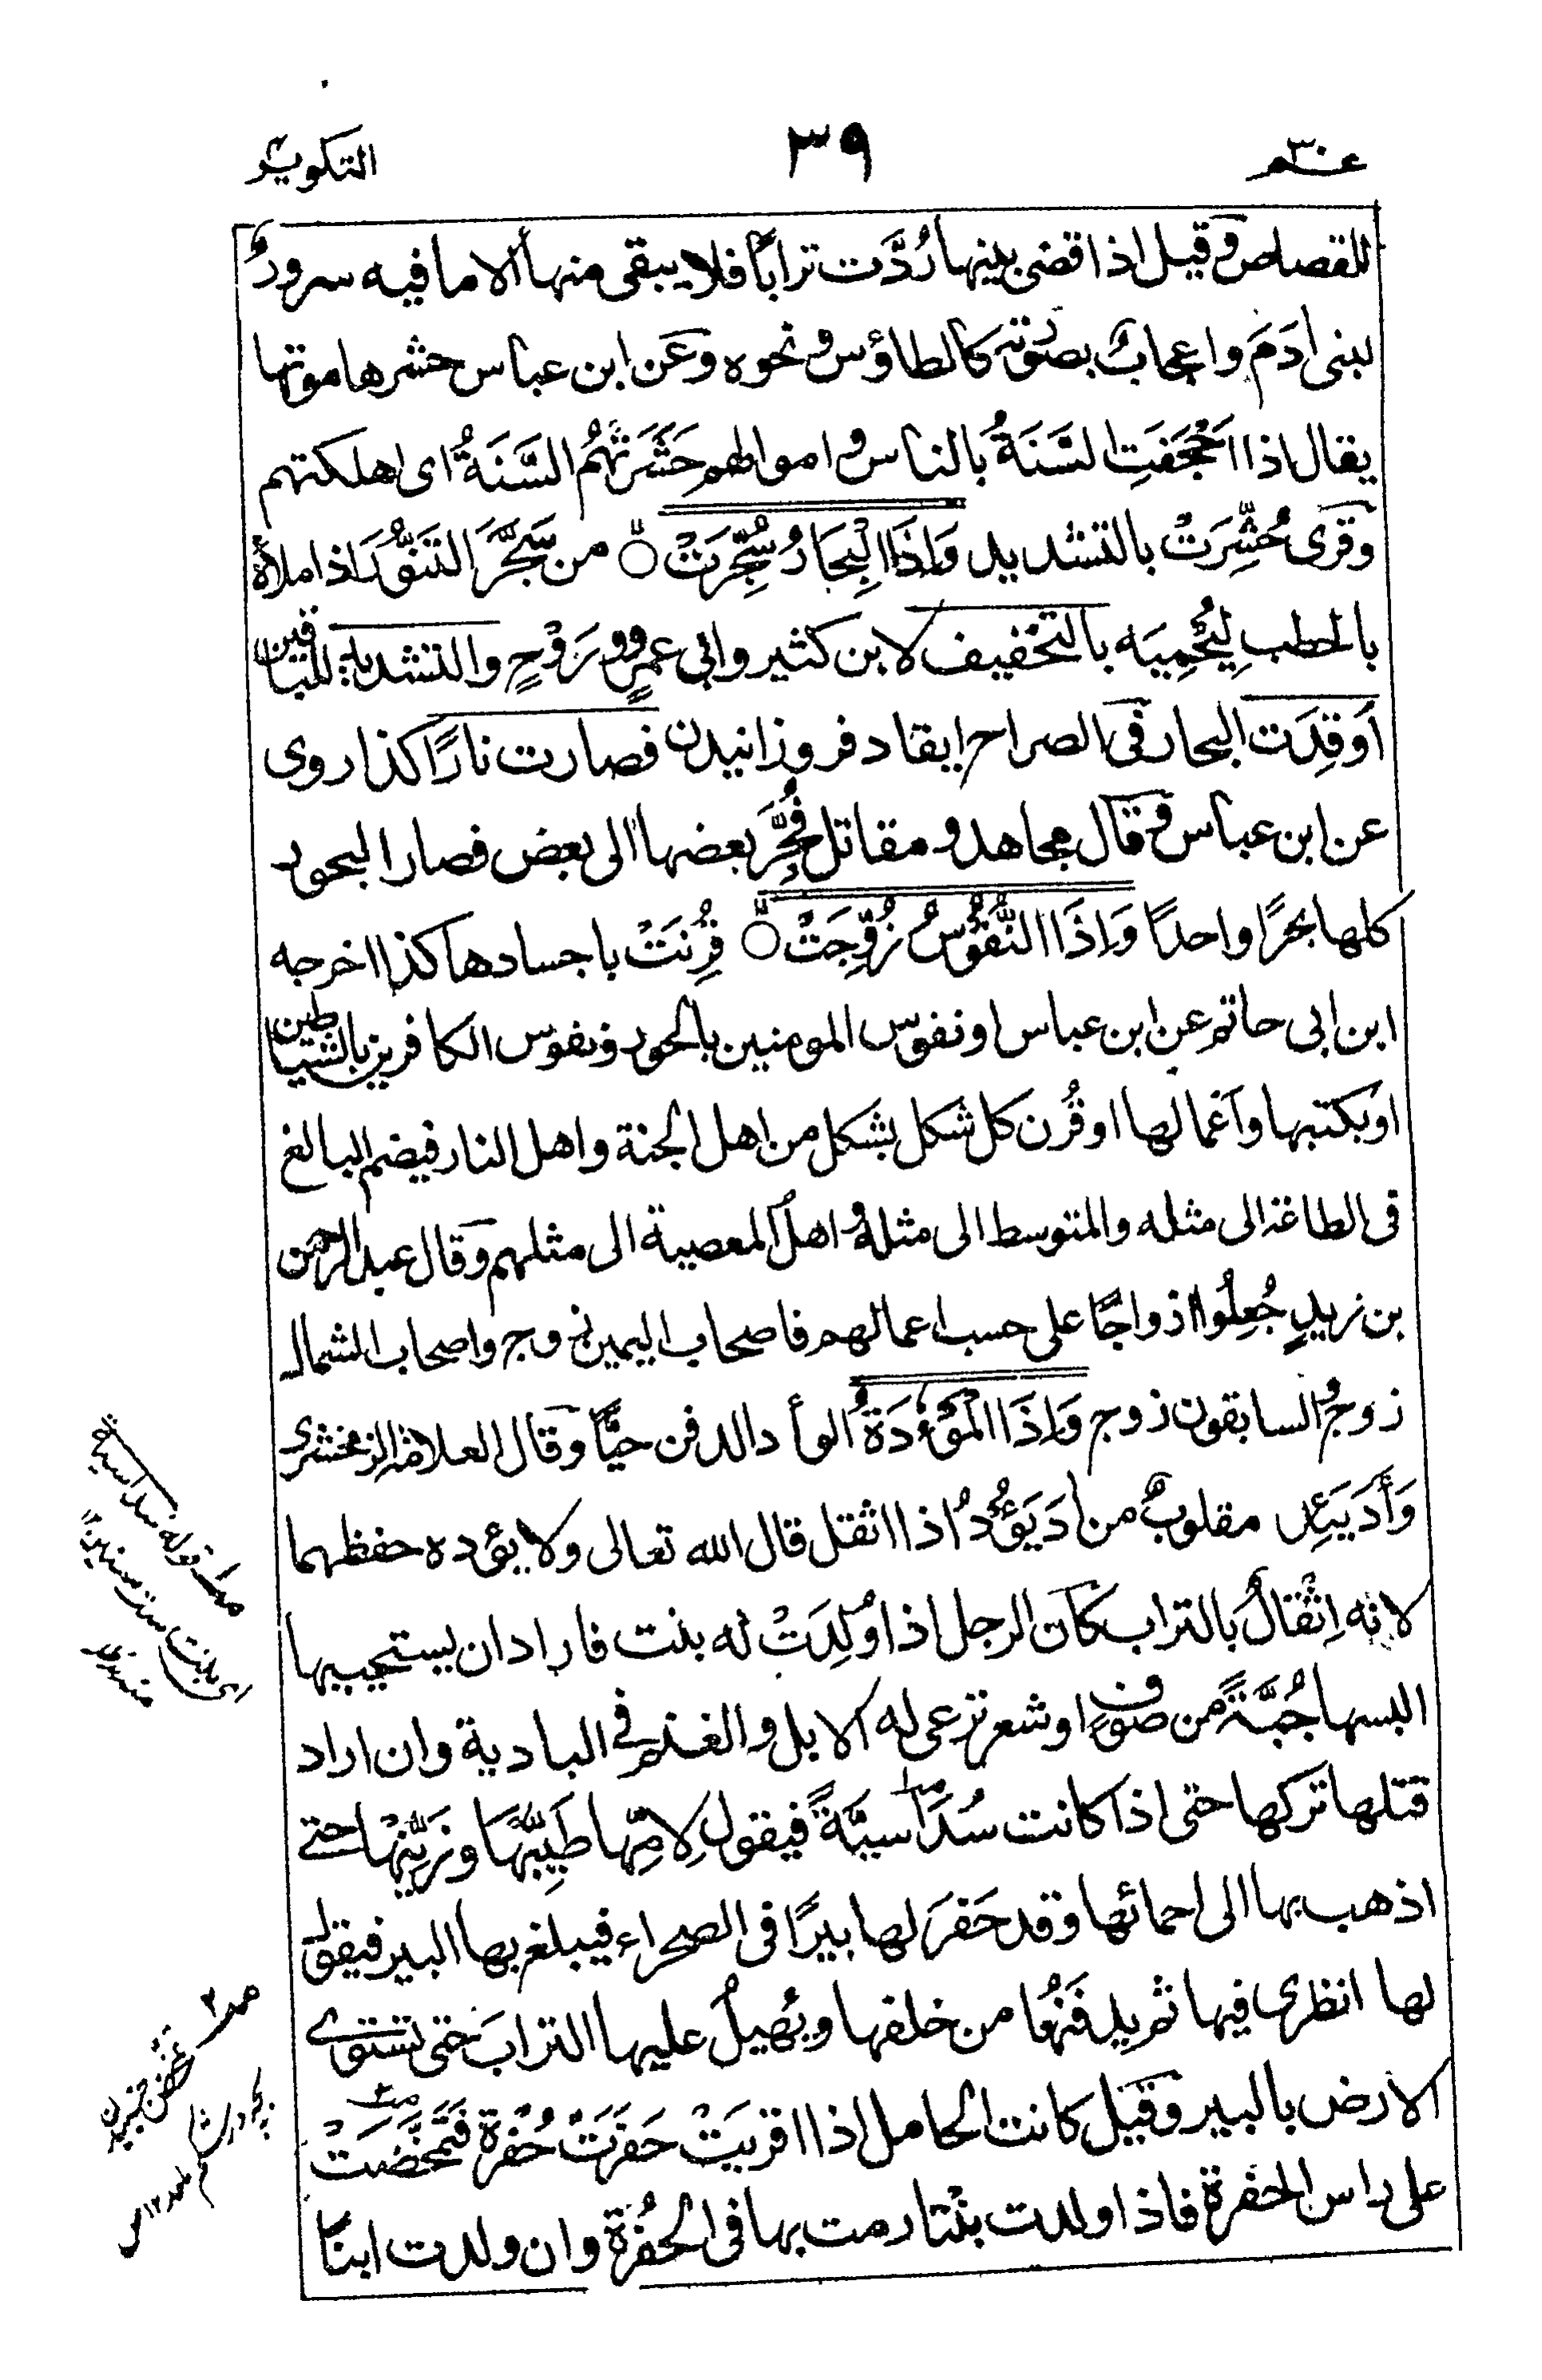 عـم٣٠
٣٩
التكوير
للقصاص وقيل اذا قضى بينها رُدَّت ترابًا فلا يبقى منها الا ما فيه سرورٌ
لبنى ادَمَ واعجابٌ بصورته كالطاؤس ونحوه وعن ابن عباس حشرها موتها
يقال اذا اَجْحَفَتِ السَّنَةُ بالناس واموالهم حَشَرَتْهُمُ السَّنَةُ اى اهلكتهم
وقرى حُشِّرَتْ بالتشديد وَاِذَا الْبِحَارُ سُجِّرَتْ ۝ من سَجَّرَ التَنُّوْرَ اذا ملأه
بالحطبِ لِيُحْمِيَه بالتخفيف لابن كثير وابى عمرٍو ورَوْحٍ والتشديد للباقين
اَوقِدَت البحار فى الصراح ايقاد فروزانيدن فصارت نارًا كذا روى
عن ابن عباس وقال مجاهد ومقاتل فُجِّرَ بعضها الى بعض فصار البحور
كلها بحرًا واحدًا وَاِذَا النُّفُوْسُ زُوِّجَتْ ۝ قُرِنَتْ باجسادها كذا اخرجه
ابن ابى حاتم عن ابن عباس او نفوس المومنين بالحور ونفوس الكافرين بالشياطين
او بكتبها واَعمالها او قُرن كل شكل بشكل من اهل الجنة واهل النار فيضم البالغ
فى الطاعة الى مثله والمتوسط الى مثله واهل المعصية الى مثلهم وقال عبد الرحمن
بن زيدٍ جُعِلُوا ازواجًا على حسب اعمالهم فاصحاب اليمين زوج واصحاب الشمال
زوج والسابقون زوج وَاِذَا الْمَوْءٗدَةُ الوأد الدفن حيًّا وقال العلامة الزمخشرى
وَأَدَ يَئِد مقلوبٌ من اٰدَ يَؤُدُ اذا اثقل قال الله تعالى ولا يؤده حفظهما
لانه اِثْقالٌ بالتراب كان الرجل اذا وُلِدَتْ له بنت فاراد ان يستحييها
البسها جُبَّةً من صوفٍ او شعر ترعى له الابل والغنم فى البادية وان اراد
قتلها تركها حتى اذا كانت سُدَاسيَّةً فيقول لِامِّها طَيِّبِيْهَا وزَيِّنِيْهَا حتى
اذهب بها الى احمائها وقد حَفَرَ لها بيرًا فى الصحراء فيبلغ بها البير فيقول
لها انظرى فيها ثم يدفَعُها من خلفها ويُهيلُ عليها الترابَ حتى تستوى
الارض بالبير وقيل كانت الحامل اذا اقربَتْ حَفَرَتْ حُفْرَة فَتَمَخَّضَتْ
على راس الحفرة فاذا ولدت بنتا رمت بها فى الحُفْرَة وان ولدت ابنًا
قوله سداسية
اى بنت ست سنين